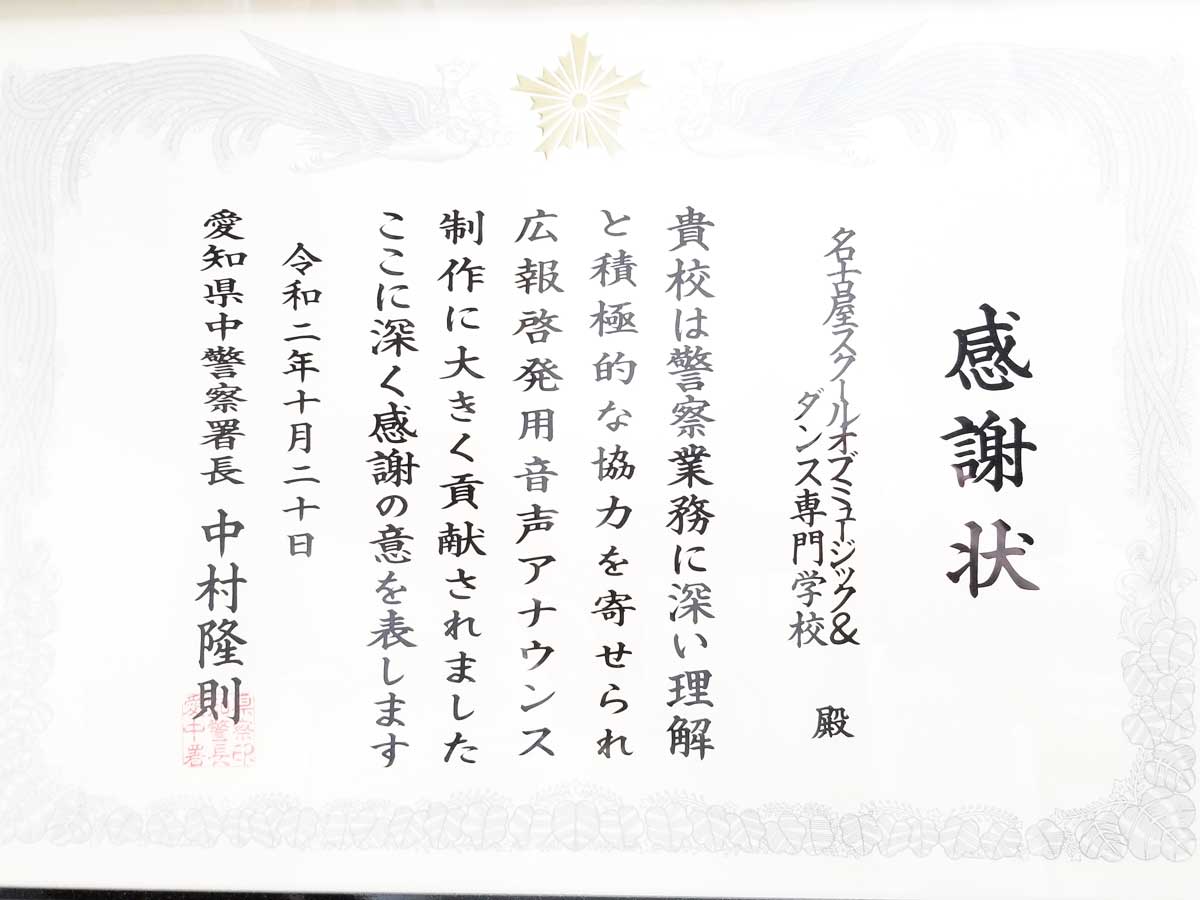 感謝状
名古屋スクールオブミュージック&
ダンス専門学校 殿
貴校は警察業務に深い理解
と積極的な協力を寄せられ
広報啓発用音声アナウンス
制作に大きく貢献されました
ここに深く感謝の意を表します
令和二年十月二十日
愛知県中警察署長 中村隆則